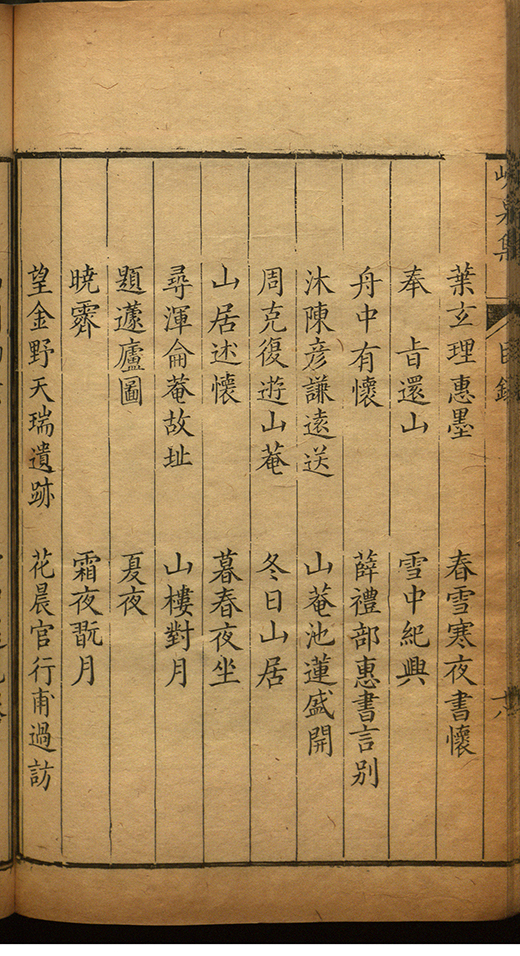 峴泉集
目錄
六
葉玄理惠墨　春雪寒夜書懷
奉　旨還山　雪中紀興
舟中有懷　薛禮部惠書言别
沐陳彦謙遠送　山菴池蓮盛開
周克復逰山菴　冬日山居
山居述懷　暮春夜坐
尋渾侖菴故址　山樓對月
題蘧廬圖　夏夜
曉霽　霜夜翫月
望金野天瑞遺跡　花晨官行甫過訪